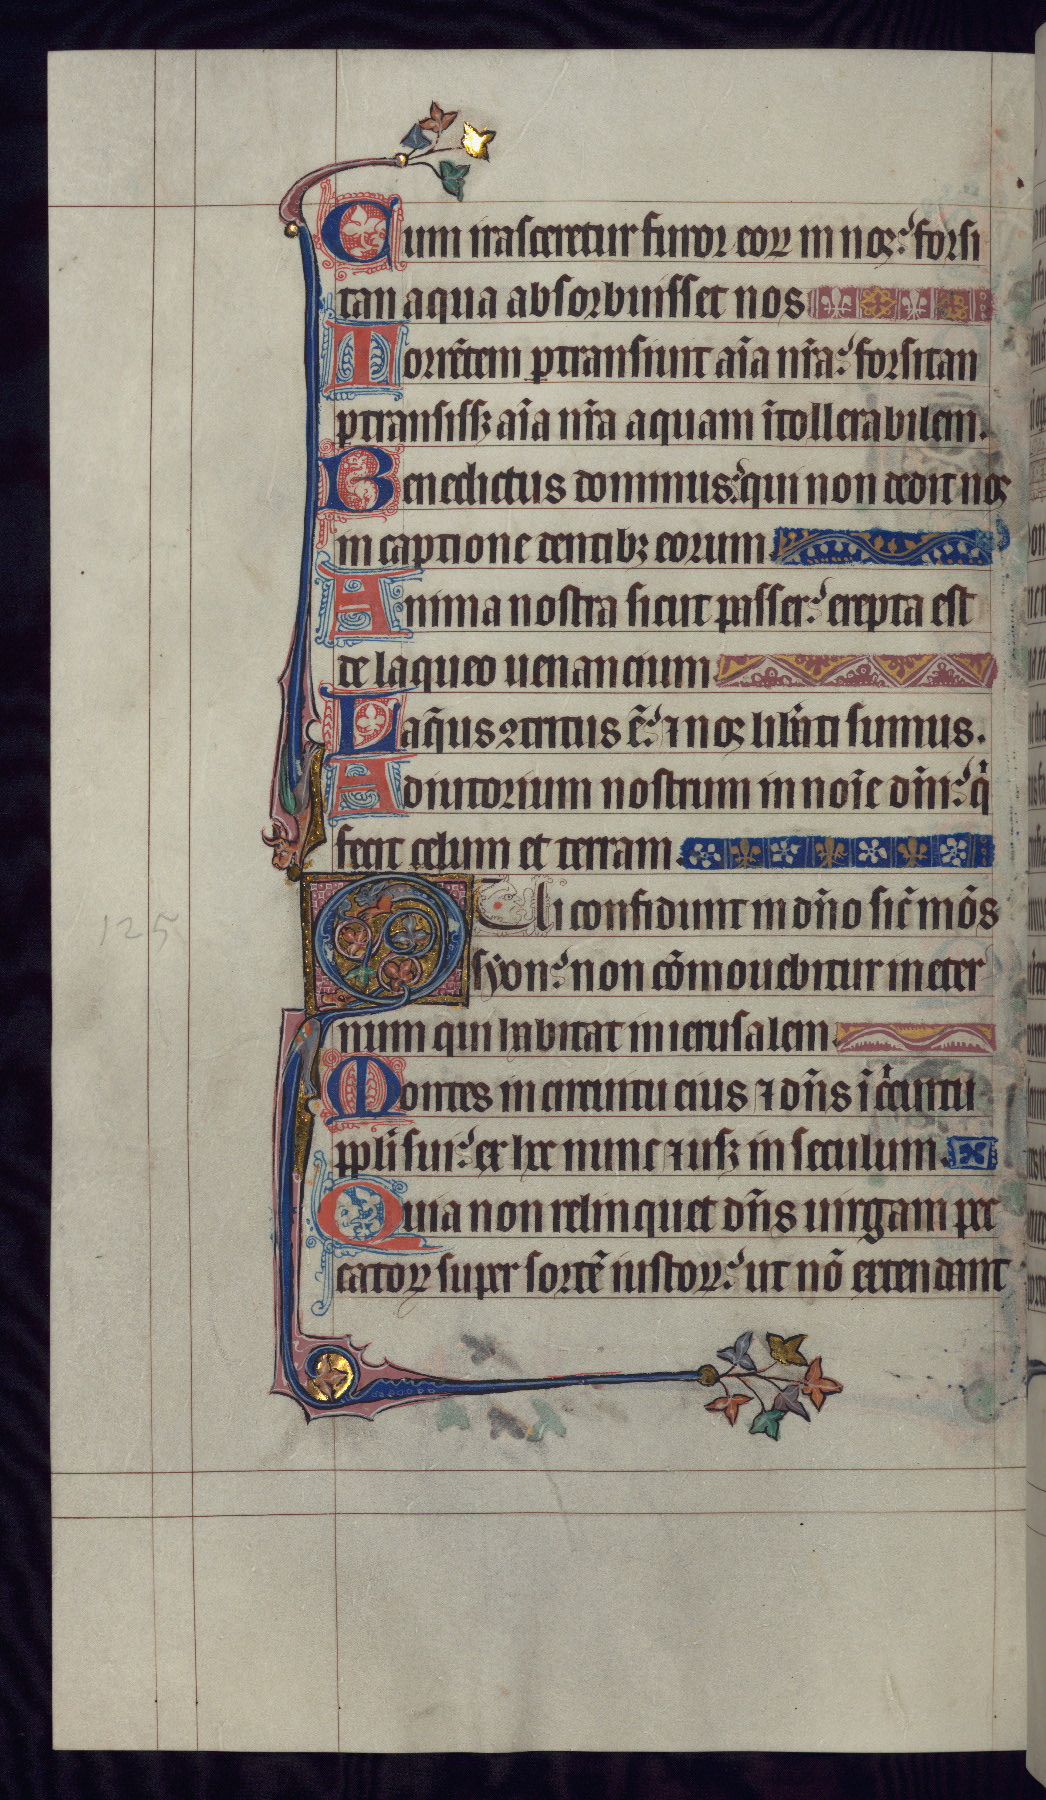 Cum irasceretur furor eoꝝ in nos: forsi
tan aqua absorbuisset nos
Torrẽtem ꝑtransiuit aĩa nr̃a: forsitan
ꝑtransissꝫ aĩa nr̃a aquam ĩtollerabilem.
Benedictus dominus: qui non dedit nos
in captione dentibꝫ eorum
Anima nostra sicut passer: erepta est
de laqueo uenancium
Laq̃us ꝯtritus ẽ: ⁊ nos lib̃ati sumus.
Adiutorium nostrum in noĩe dñi: qͥ
fecit celum et terram
Qui confidunt in dño sic̃ mõs
syon: non cõmouebitur in eter
num qui habitat in ierusalem
Montes in circuitu eius ⁊ dñs ĩ cͥcuitu
ppl̃i sui: ex hoc nunc ⁊ usꝫ in seculum.
Quia non relinquet dñs uirgam pec
catoꝝ super sortẽ iustoꝝ: ut nõ extendant
125